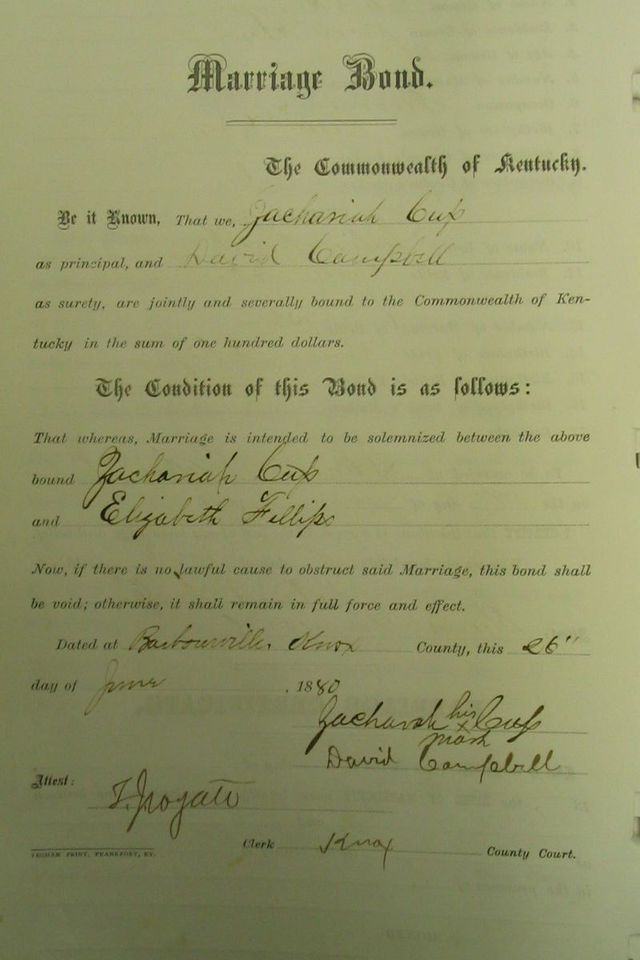 Marriage Bond.
The Commonwealth of Kentucky.
Be it Known, That we, Zachariah Cup
as principal, and David Campbell
as surety, are jointly and severally bound to the Commonwealth of Ken-
tucky in the sum of one hundred dollars.
The Condition of this Bond is as follows:
That whereas, Marriage is intended to be solemnized between the above
bound Zachariah Cup
and Elizabeth Fillips
Now, if there is no lawful cause to obstruct said Marriage, this bond shall
be void; otherwise, it shall remain in full force and effect.
Dated at Barbourville, Knox County, this 26"
day of June , 1880
Zachariah his x mark Cup
David Campbell
Attest:
Clerk Knox County Court.
PRINT, FRANKFORT, KY.